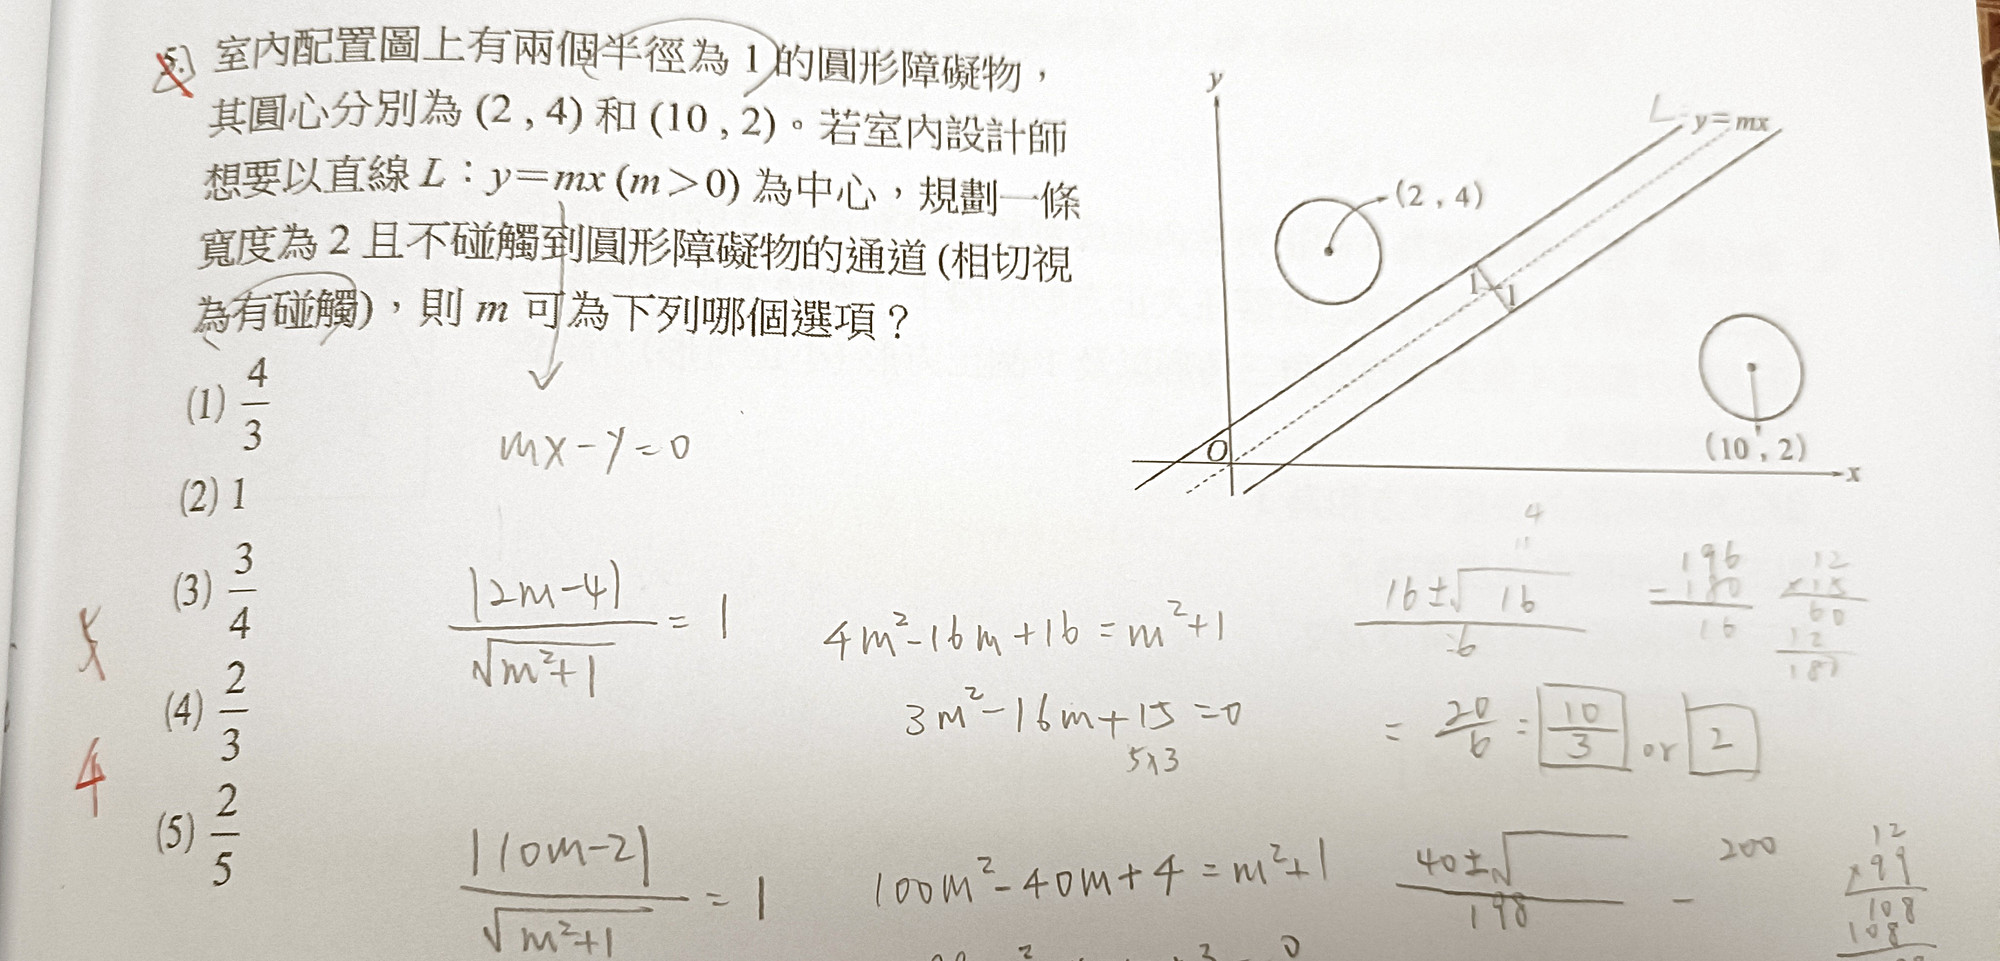 5. 室內配置圖上有兩個半徑為 1 的圓形障礙物，
其圓心分別為 (2 , 4) 和 (10 , 2)。若室內設計師
想要以直線 L：y=mx (m>0) 為中心，規劃一條
寬度為 2 且不碰觸到圓形障礙物的通道 (相切視
為有碰觸)，則 m 可為下列哪個選項？
(1) 4/3
(2) 1
(3) 3/4
(4) 2/3
(5) 2/5
y
L: y=mx
(2 , 4)
1
1
O
(10 , 2)
x
mx-y=0
|2m-4| / √(m²+1) = 1
4m²-16m+16 = m²+1
3m²-16m+15=0
5x3
4
16±√16 / 6
= 20/6 = 10/3 or 2
196
-180
16
12
×15
60
12
180
5
4
|10m-2| / √(m²+1) = 1
100m²-40m+4 = m²+1
40±√ / 198
200
12
×99
108
108